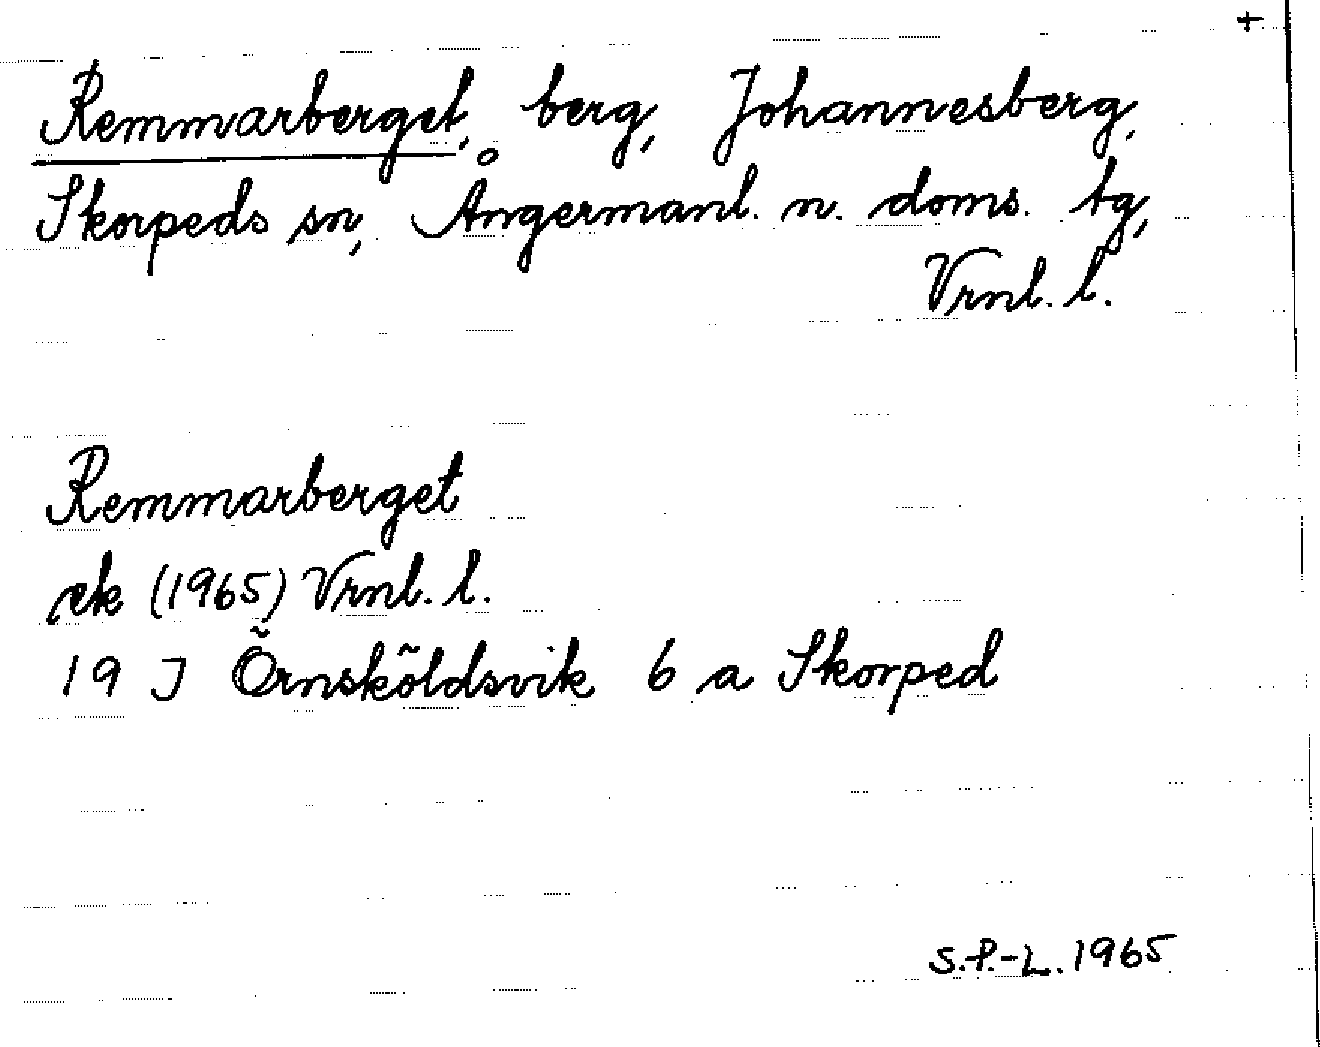 +
Remmarberget, berg, Johannesberg,
Skorpeds sn, Ångermanl. n. doms. tg,
Vrnl. l.
Remmarberget
ek (1965) Vrnl. l.
19 J Örnsköldsvik 6 a Skorped
S.P.-L. 1965